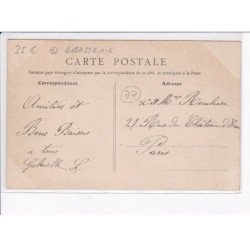 35€ BRASSERIE
CARTE POSTALE
Certains pays étrangers n'acceptent pas la correspondance de ce côté, se renseigner à la Poste
Correspondance
Adresse
77
Amitiés et
Bons Baisers
à tous
Gabrielle L.
M et Mme
27 Rue du Château d'Eau
Paris